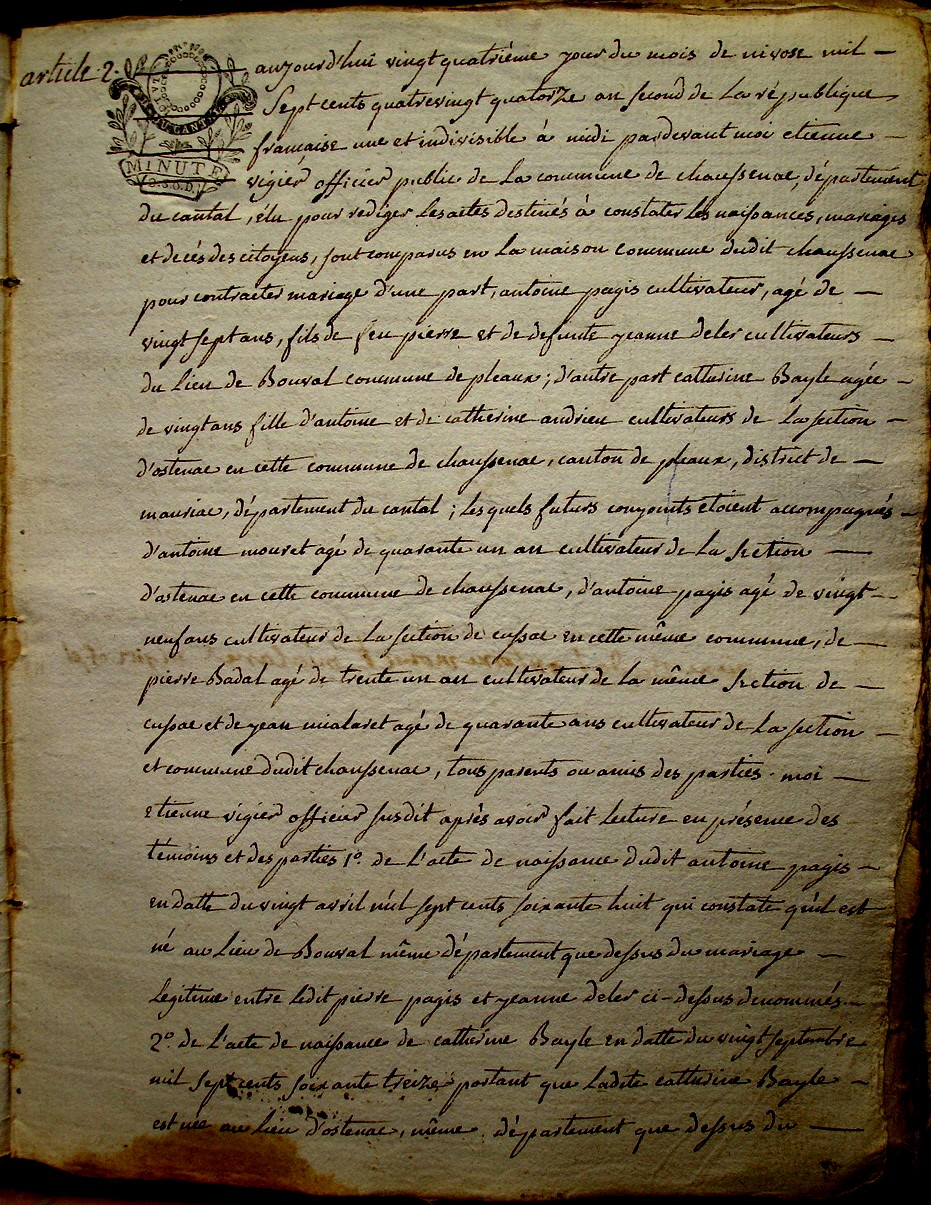 article 2.
MINUTE
aujourd'hui vingt quatriême jour du mois de nivose mil —
Sept cents quatrevingt quatorze an second de La république
française une et indivisible à midi pardevant moi etienne —
vigier officier public de La commune de chaussenac, département
du cantal, élu pour rediger Les actes destinés à constater Les naissances, mariages
et decés des citoyens, sont comparus en La maison commune dudit chaussenac
pour contracter mariage d'une part, antoine pagis cultivateur, agé de —
vingt sept ans, fils de feu pierre et de defunte jeanne deler cultivateurs —
du Lieu de Bouval commune de pleaux; d'autre part catherine Bayle agée —
de vingt ans fille d'antoine et de catherine andrieu cultivateurs de La section —
d'ostenac en cette commune de chaussenac, canton de pleaux, district de —
mauriac, département du cantal; Les quels futurs conjoints étoient accompagnés —
d'antoine mouret agé de quarante un an cultivateur de La Section —
d'ostenac en cette commune de chaussenac, d'antoine pagis agé de vingt —
neuf ans cultivateur de La section de cussac en cette même commune, de —
pierre Badal agé de trente un an cultivateur de La même Section de —
cussac et de jean mialaret agé de quarante ans cultivateur de La section —
et commune dudit chaussenac, tous parents ou amis des parties. moi —
etienne vigier officier susdit après avoir fait Lecture en présence des
temoins et des parties 1º. de L'acte de naissance dudit antoine pagis —
en datte du vingt avril mil sept cents soixante huit qui constate qu'il est
né au Lieu de Bouval même département que dessus du mariage —
Legitime entre Ledit pierre pagis et jeanne deler ci-dessus denommés —
2º. de L'acte de naissance de catherine Bayle en datte du vingt septembre
mil sept cents soixante treize portant que Ladite catherine Bayle —
est née au Lieu d'ostenac, même département que dessus du —